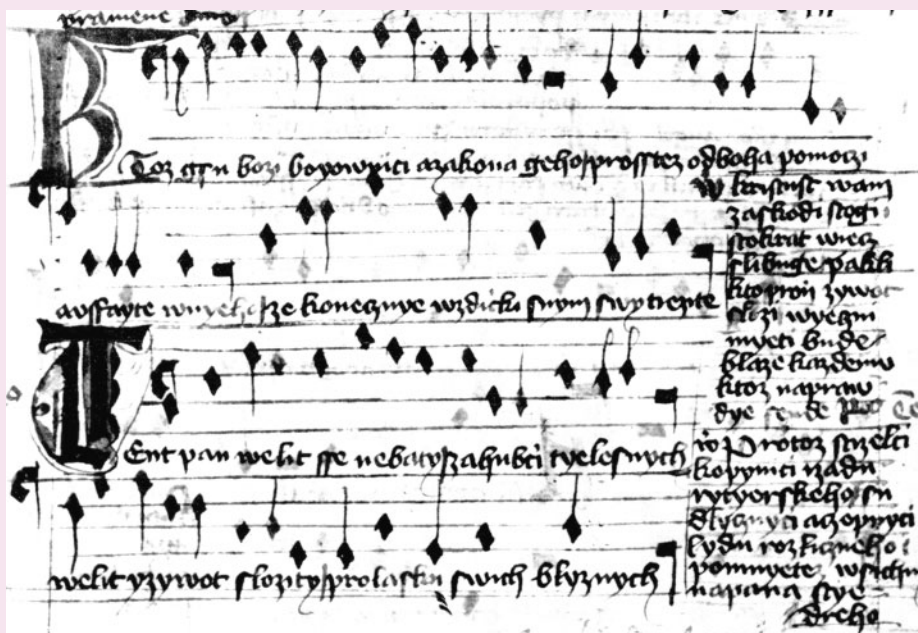 pramene
KToz gsu bozi bogownici azakona geho prosstez odboha pomoczi
aufayte wnyeho ze konecznye wzdicki snym swytiezite
TEnt pan welit sse nebaty zahubci tyelesnych
welit yzywot slozity pro lasku swich blyznych
kristust wam
zaskodi stogi
stokrat wiecz
slibuge paklli
kto pron zywot
slozi wyeczni
myeti bude
blaze kazdemu
ktoz napraw
dye sende
Protoz strzelci
kopynici rzadu
rytyerskeho su
dlycznyci aczepnyci
lydu rozliczneho i
pomnyete wsichni
napana stye
dreho